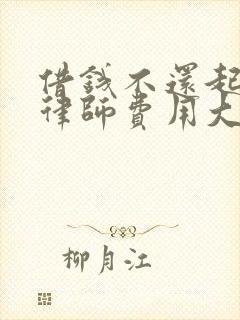 借錢不還起
律師費用大
柳月江